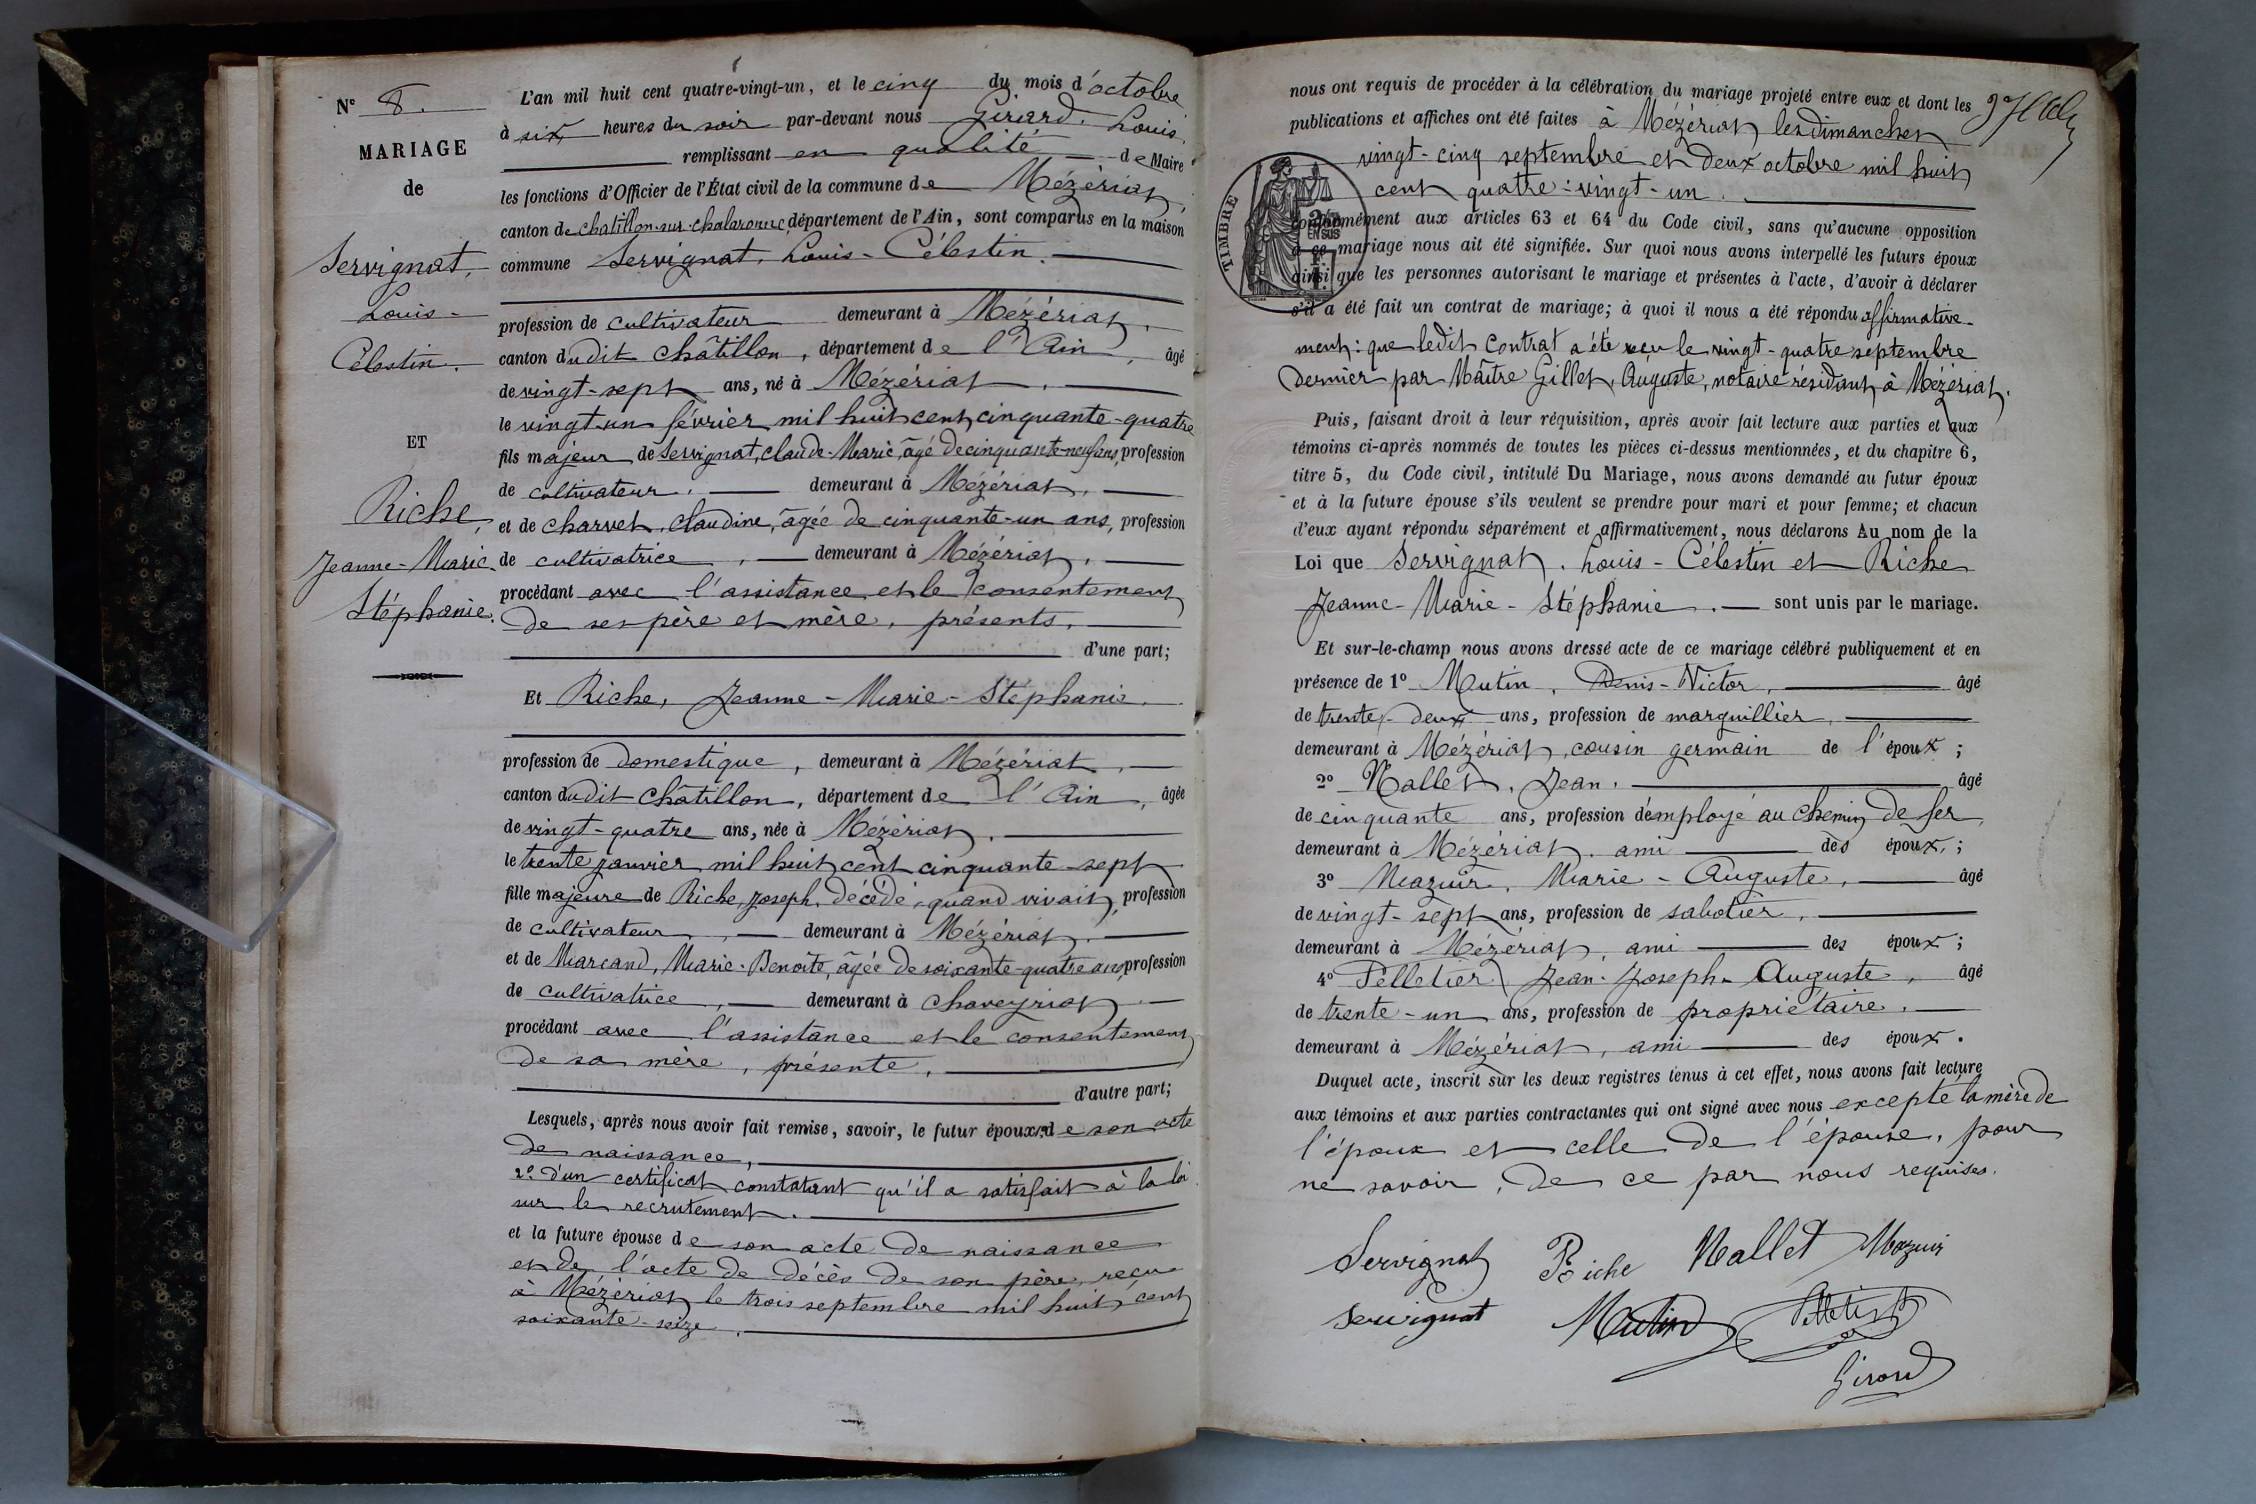 N° 8.
MARIAGE
de
Servignat,
Louis-
Célestin.
ET
Riche,
Jeanne-Marie
Stéphanie.
L'an mil huit cent quatre-vingt-un, et le cinq du mois d'octobre
à six heures du soir par-devant nous Girard, Louis,
remplissant en qualité de Maire
les fonctions d'Officier de l'État civil de la commune de Mézériat,
canton de chatillon-sur-chalaronne département de l'Ain, sont comparus en la maison
commune Servignat, Louis-Célestin.
profession de cultivateur demeurant à Mézériat,
canton dudit Châtillon, département de l'Ain, âgé
de vingt-sept ans, né à Mézériat,
le vingt-un février mil huit cent cinquante-quatre
fils majeur de Servignat, claude-Marie, âgé de cinquante-neuf ans, profession
de cultivateur, demeurant à Mézériat,
et de charvet, claudine, âgée de cinquante-un ans, profession
de cultivatrice, demeurant à Mézériat,
procédant avec l'assistance et le consentement
de ses père et mère, présents,
d'une part;
Et Riche, Jeanne-Marie-Stéphanie,
profession de domestique, demeurant à Mézériat,
canton dudit Châtillon, département de l'Ain, âgée
de vingt-quatre ans, née à Mézériat,
le trente janvier mil huit cent cinquante-sept
fille majeure de Riche, Joseph, décédé, quand vivait, profession
de cultivateur, demeurant à Mézériat,
et de Marcand, Marie-Benoîte, âgée de soixante-quatre ans, profession
de cultivatrice, demeurant à chaveyriat
procédant avec l'assistance et le consentement
de sa mère, présente,
d'autre part;
Lesquels, après nous avoir fait remise, savoir, le futur époux, 1° de son acte
de naissance,
2° d'un certificat constatant qu'il a satisfait à la loi
sur le recrutement.
et la future épouse de son acte de naissance
et de l'acte de décès de son père, reçu
à Mézériat le trois septembre mil huit cent
soixante-seize.
nous ont requis de procéder à la célébration du mariage projeté entre eux et dont les
publications et affiches ont été faites à Mézériat, les dimanches
vingt-cinq septembre et deux octobre mil huit
cent quatre-vingt-un.
TIMBRE
2/10 EN SUS
conformément aux articles 63 et 64 du Code civil, sans qu'aucune opposition
à ce mariage nous ait été signifiée. Sur quoi nous avons interpellé les futurs époux
ainsi que les personnes autorisant le mariage et présentes à l'acte, d'avoir à déclarer
s'il a été fait un contrat de mariage; à quoi il nous a été répondu affirmative-
ment: que ledit contrat a été reçu le vingt-quatre septembre
dernier par Maître Gillet, Auguste, notaire résidant à Mézériat.
Puis, faisant droit à leur réquisition, après avoir fait lecture aux parties et aux
témoins ci-après nommés de toutes les pièces ci-dessus mentionnées, et du chapitre 6,
titre 5, du Code civil, intitulé Du Mariage, nous avons demandé au futur époux
et à la future épouse s'ils veulent se prendre pour mari et pour femme; et chacun
d'eux ayant répondu séparément et affirmativement, nous déclarons Au nom de la
Loi que Servignat, Louis-Célestin et Riche
Jeanne-Marie-Stéphanie. sont unis par le mariage.
Et sur-le-champ nous avons dressé acte de ce mariage célébré publiquement et en
présence de 1° Mutin, Denis-Victor, âgé
de trente-deux ans, profession de marguillier,
demeurant à Mézériat, cousin germain de l'époux;
2° Nallet, Jean, âgé
de cinquante ans, profession d'employé au chemin de fer,
demeurant à Mézériat, ami des époux;
3° Mazuir, Marie-Auguste, âgé
de vingt-sept ans, profession de sabotier,
demeurant à Mézériat, ami des époux;
4° Pelletier Jean-Joseph-Auguste, âgé
de trente-un ans, profession de propriétaire,
demeurant à Mézériat, ami des époux.
Duquel acte, inscrit sur les deux registres tenus à cet effet, nous avons fait lecture
aux témoins et aux parties contractantes qui ont signé avec nous excepté la mère de
l'époux et celle de l'épouse, pour
ne savoir, de ce par nous requises.
Servignat Riche Nallet Mazuir
Servignat Mutin Pelletier
Girard